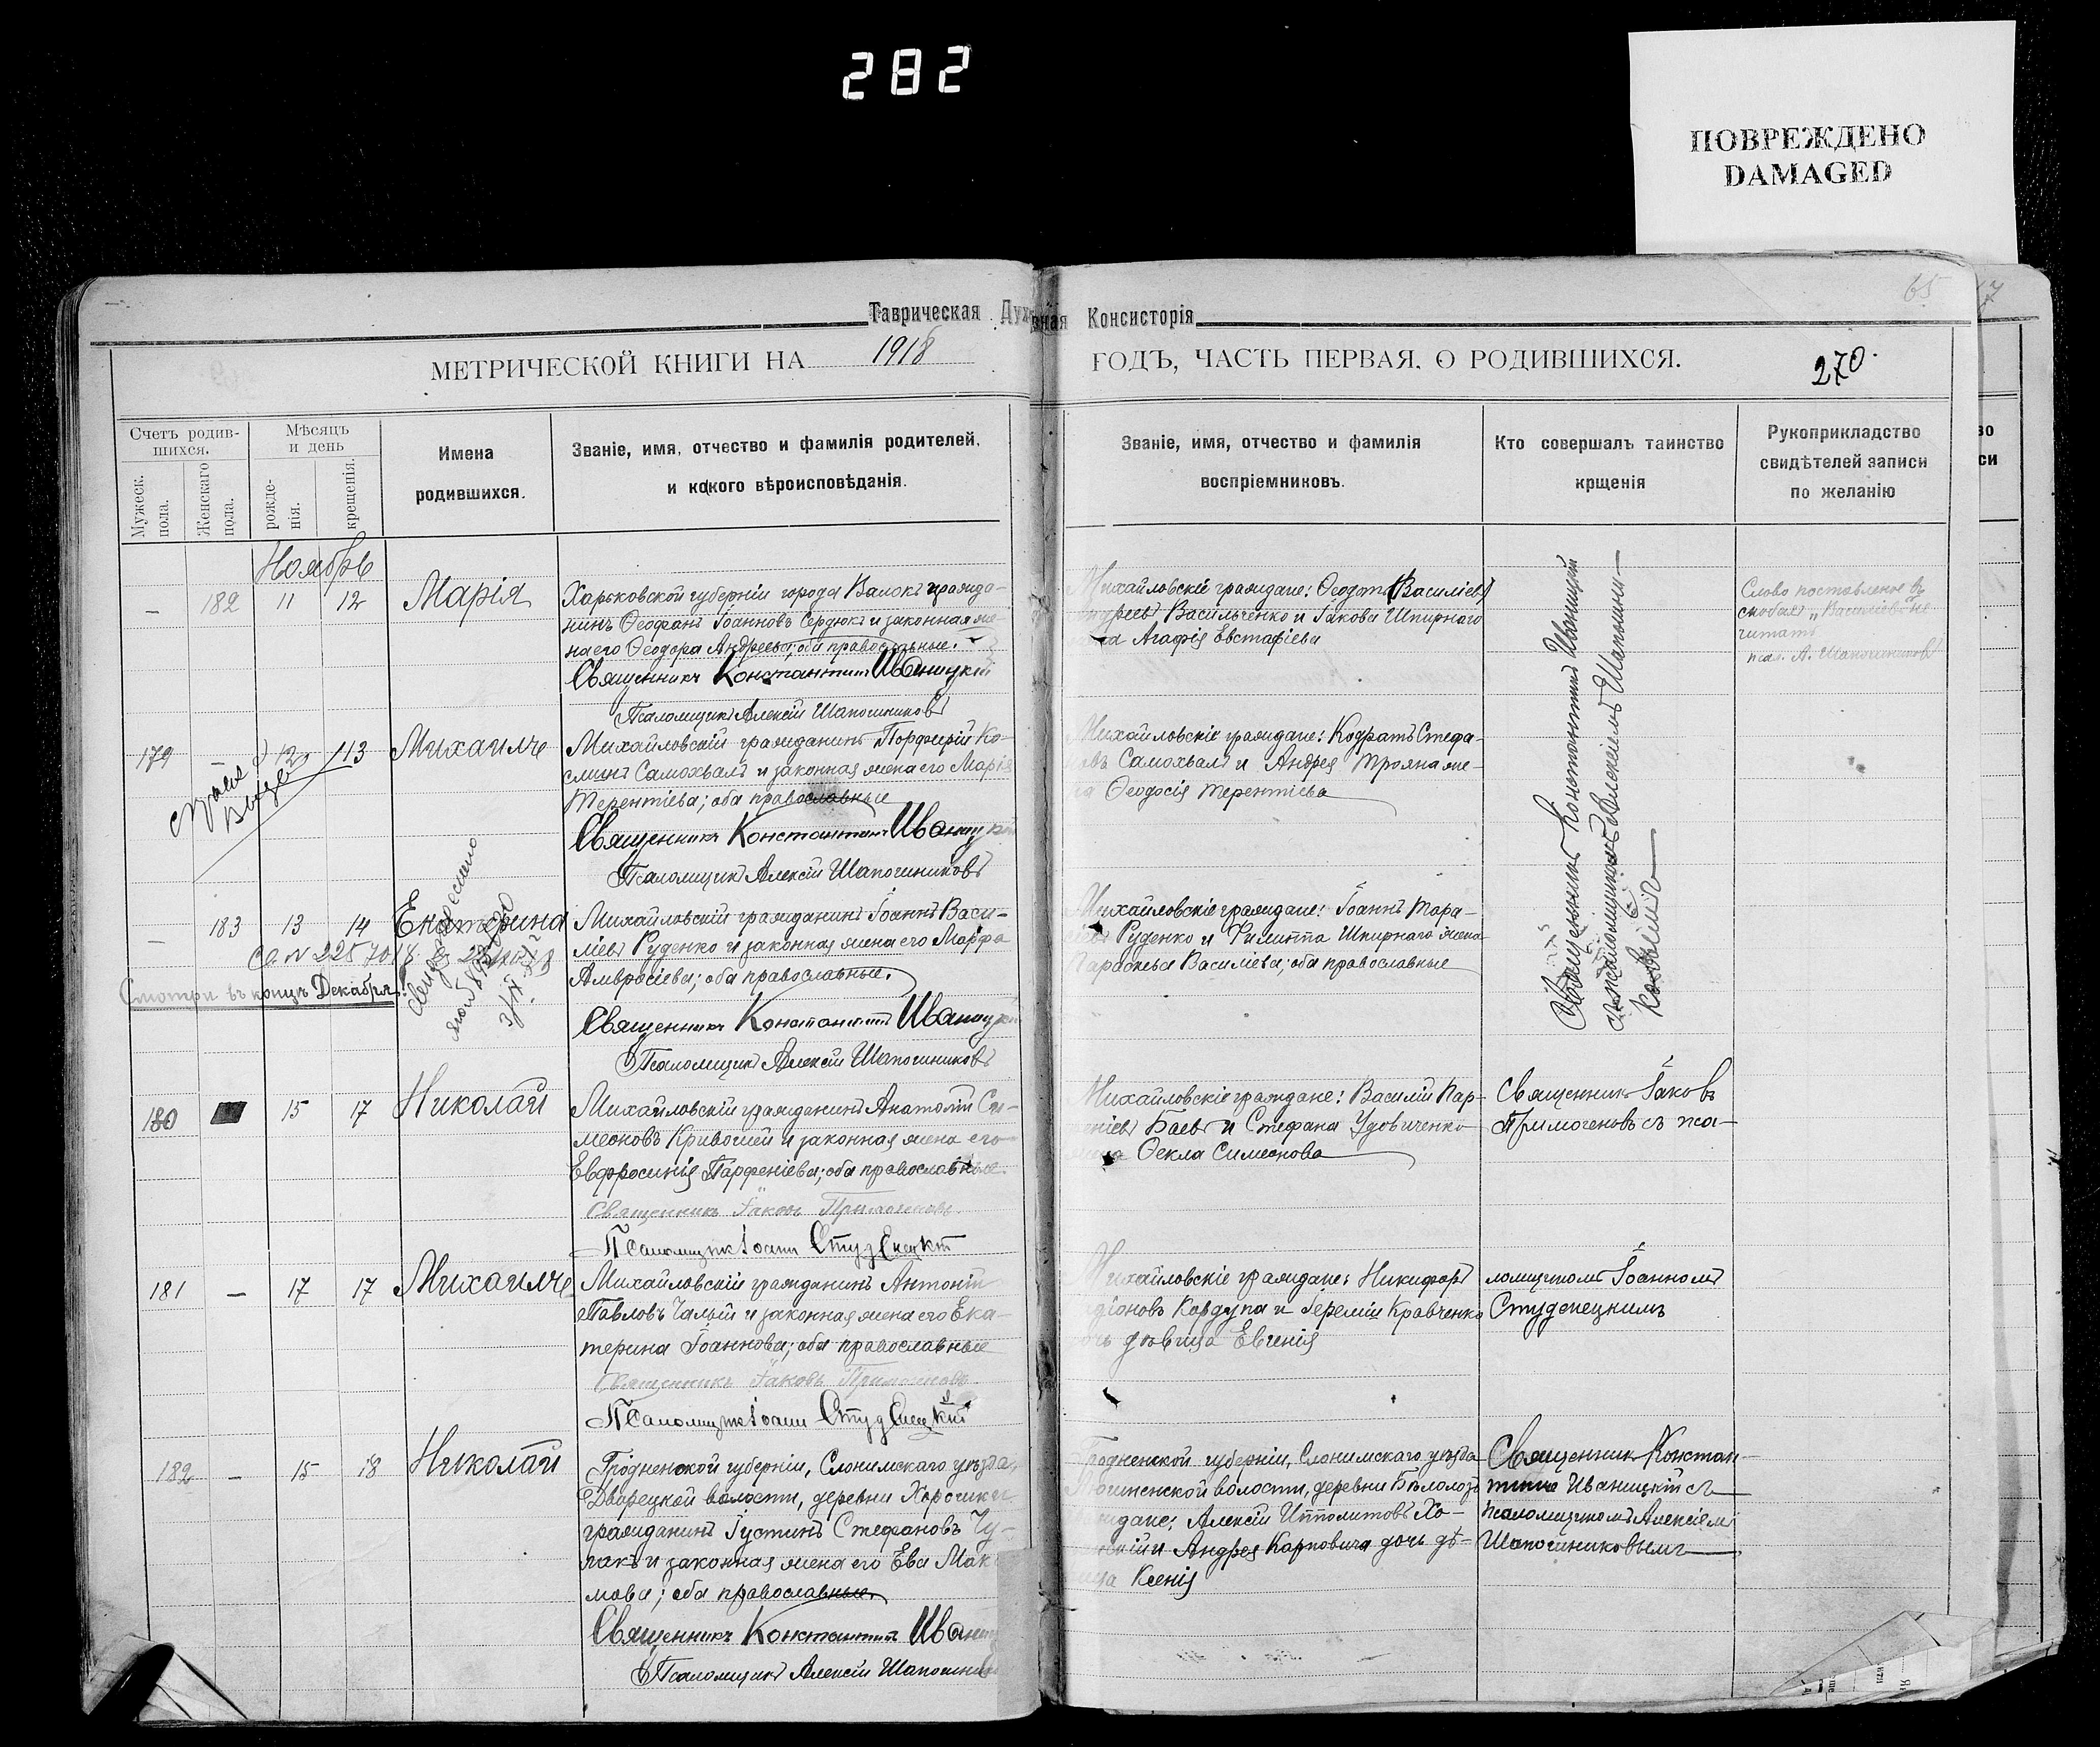 282
ПОВРЕЖДЕНО
DAMAGED
65
Таврическая Духовная Консисторія
МЕТРИЧЕСКОЙ КНИГИ НА 1918 ГОДЪ, ЧАСТЬ ПЕРВАЯ, О РОДИВШИХСЯ.
270.
Счетъ родившихся.
Мужеск. пола.
Женскаго пола.
Мѣсяцъ и день
рожденія.
крещенія.
Имена
родившихся.
Званіе, имя, отчество и фамилія родителей,
и какого вѣроисповѣданія.
Званіе, имя, отчество и фамилія
воспріемниковъ.
Кто совершалъ таинство
крщенія
Рукоприкладство
свидѣтелей записи
по желанію
Ноябрь
— 182 11 12 Марія
Харьковской губерніи города Валокъ гражда-
нинъ Ѳеофанъ Іоанновъ Сердюкъ и законная же-
на его Ѳеодора Андреева; оба православные.
Священникъ Константинъ Иваницкій
Псаломщикъ Алексій Шапошниковъ
Михайловскіе граждане: Ѳеодотъ (Василіевъ)
Андреевъ Васильченко и Іакова Шпирного
жена Агафія Евстафіева
Слово поставленное въ
скобах „Василіевъ" не
читать
пса. А. Шапошниковъ
179 12 13 Михаилъ
Михайловскій гражданинъ Порфирій Ко-
сминъ Самохвалъ и законная жена его Марія
Терентіева; оба православные
Священникъ Константинъ Иваницкій
Псаломщикъ Алексій Шапошниковъ
Михайловскіе граждане: Кодратъ Стефа-
новъ Самохвалъ и Андрея Трояна же-
на Ѳеодосія Терентіева
Священникъ Константинъ Иваницкій
съ псаломщикомъ Алексіемъ Шапошни-
ковымъ
— 183 13 14 Екатерина
Смотри въ концѣ Декабря!
Михайловскій гражданинъ Іоаннъ Васи-
ліевъ Руденко и законная жена его Марфа
Амвросіева; оба православные.
Священникъ Константинъ Иваницкій
Псаломщикъ Алексій Шапошниковъ
Михайловскіе граждане: Іоаннъ Тара-
сіевъ Руденко и Филиппа Шпирнаго жена
Параскева Василіева; оба православные
180 15 17 Николай
Михайловскій гражданинъ Анатолій Си-
меоновъ Кривошей и законная жена его
Евфросинія Парфеніева; оба православные.
Священникъ Іаковъ Примоченовъ
Псаломщикъ Іоаннъ Студенецкій
Михайловскіе граждане: Василій Пар-
феніевъ Баевъ и Стефана Удовиченко
жена Ѳекла Симеонова
Священникъ Іаковъ
Примоченовъ съ пса-
181 — 17 17 Михаилъ
Михайловскій гражданинъ Антоній
Павловъ Чалый и законная жена его Ека-
терина Іоаннова; оба православные
Священникъ Іаковъ Примоченовъ
Псаломщикъ Іоаннъ Студенецкій
Михайловскіе граждане: Никифоръ
діоновъ Кордупа и Іеремія Кравченко
дочь дѣвица Евгенія
ломщикомъ Іоанномъ
Студенецкимъ
182 — 15 18 Николай
Гродненской губерніи, Слонимскаго уѣзда,
Дворецкой волости, деревни Хорошки
гражданинъ Іустинъ Стефановъ Чу-
пакъ и законная жена его Ева Мак-
мова; оба православные.
Священникъ Константинъ Иваницкій
Псаломщикъ Алексій Шапошниковъ
Гродненской губерніи, Слонимскаго уѣзда
волости, деревни
граждане: Алексій Ипполитовъ Хо-
и Андрея Карповича дочь дѣ-
вица Ксенія
Священникъ Констан-
тинъ Иваницкій съ
псаломщикомъ Алексіемъ
Шапошниковымъ